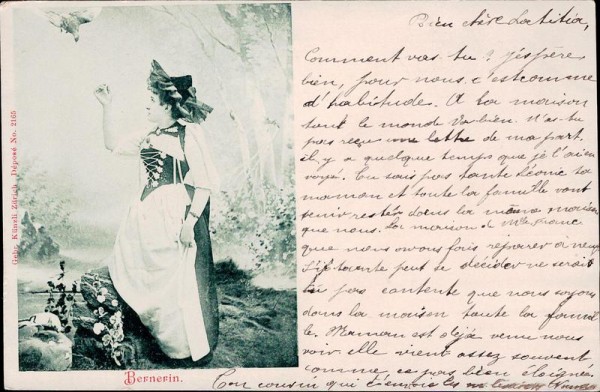 Gebr. Künzli, Zürich. Déposé No. 2165
Bernerin.
Bien chère Laetitia,
Comment vas-tu? j'espère
bien, pour nous c'est comme
d'habitude. A la maison
tout le monde va bien. N'as-tu
pas reçu une lettre de ma part
il y a quelque temps que je l'ai en
voyé. Tu sais pas tante Léonie sa
maman et toute la famille vont
venir rester dans la même maison
que nous. La maison de Mlle France
que nous avons fais reparer a neuf
S'il tante peut se décider ne serait
tu pas contente que nous soyons
dans la maison toute la famil
le. Maman est déja venu nous
voir elle vient assez souvent
comme ce pas bien éloignée
Ton cousin qui